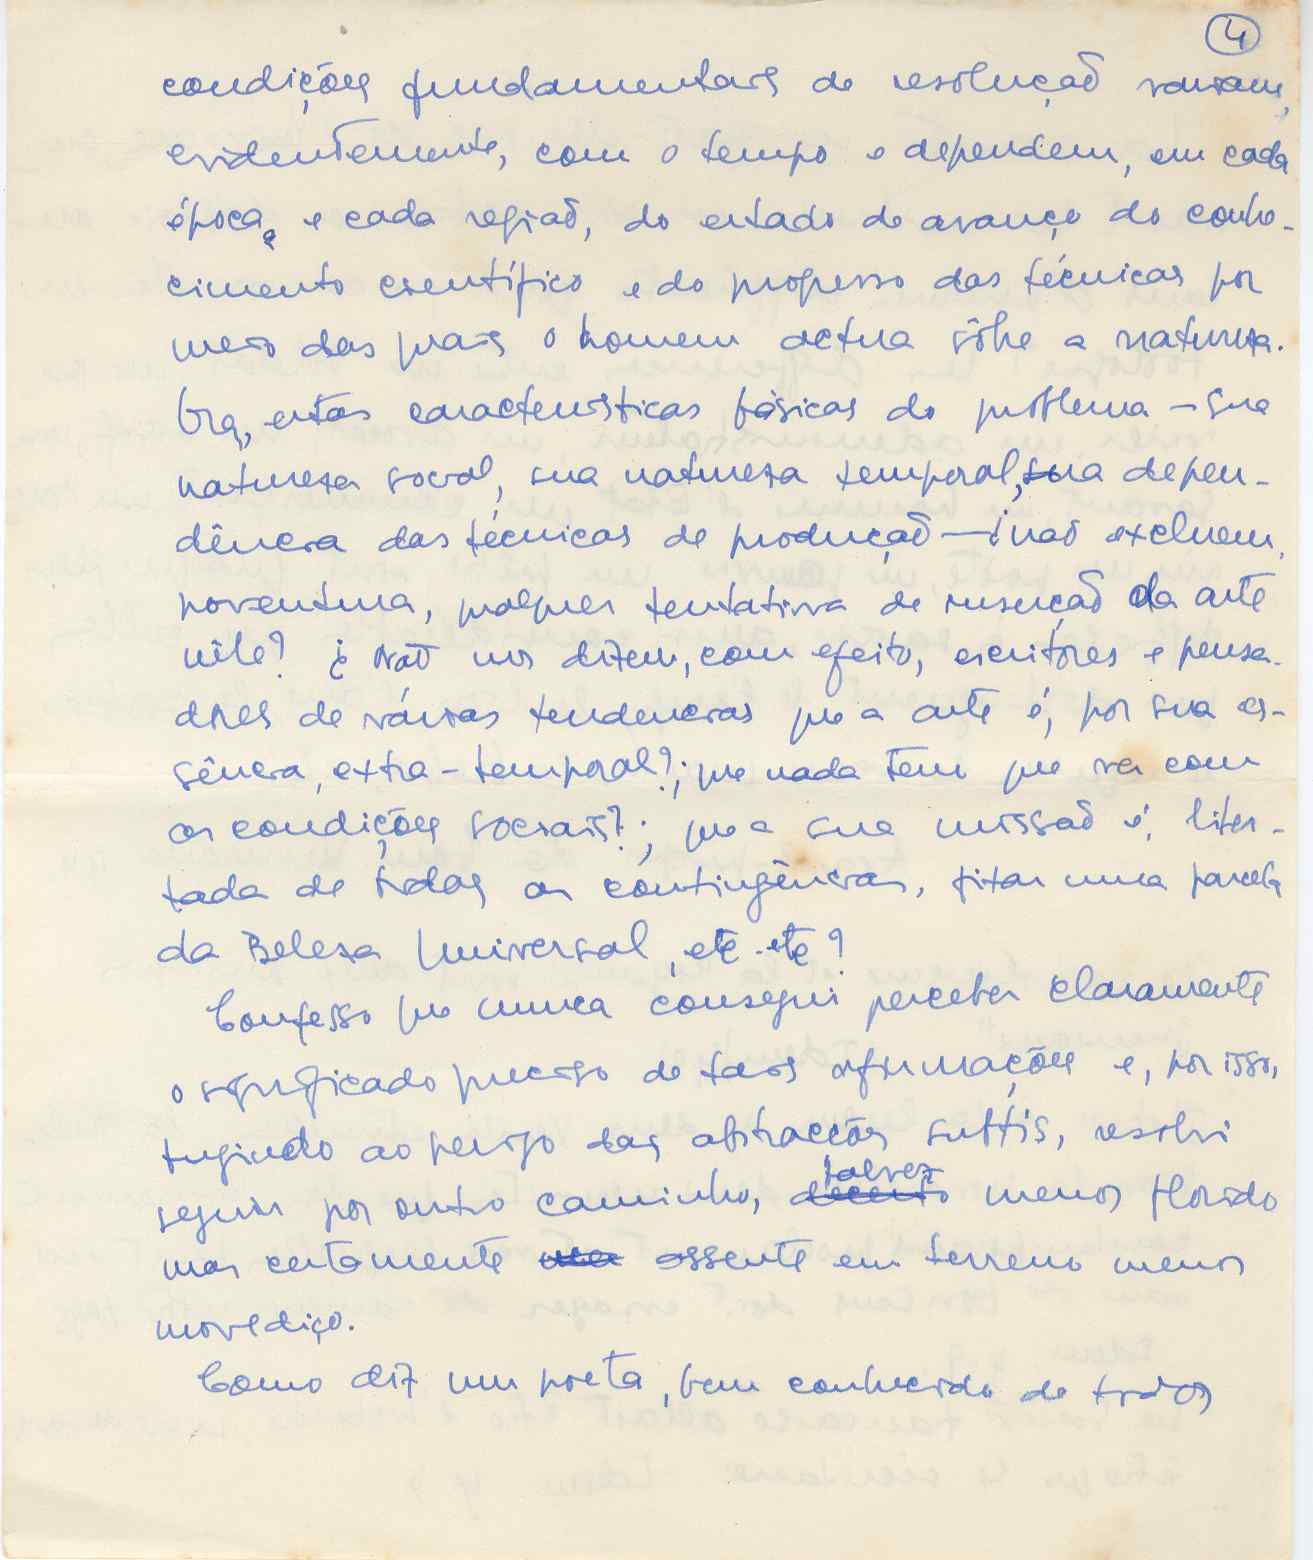 4
condições fundamentais de resolução variam,
evidentemente, com o tempo e dependem, em cada
época, e cada região, do estado de avanço do conhe-
cimento científico e do progresso das técnicas por
meio das quais o homem actua sôbre a natureza.
Ora, estas características básicas do problema — sua
natureza social, sua natureza temporal, sua depen-
dência das técnicas de produção — ¿não excluem,
porventura, qualquer tentativa de inserção da arte
nêle? ¿Não nos dizem, com efeito, escritores e pensa-
dores de várias tendencias que a arte é, por sua es-
sência, extra-temporal?; que nada tem que ver com
as condições sociais?; que a sua missão é, liber-
tada de tôdas as contingências, fixar uma parcela
da Beleza Universal, etc. etc?
Confesso que nunca consegui perceber claramente
o significado preciso de tais afirmações e, por isso,
fugindo ao perigo das abstracções subtis, resolvi
seguir por outro caminho, talvez menos florido
mas certamente assente em terreno menos
movediço.
Como diz um poeta, bem conhecido de todos